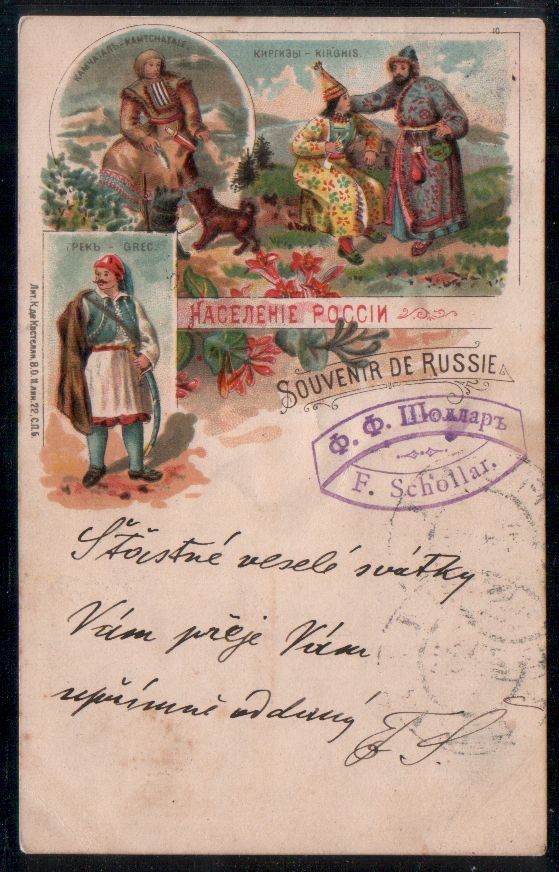 10.
КАМЧАТАЛЪ - KAMTCHATALE
КИРГИЗЫ - KIRGHIS.
ГРЕКЪ - GREC.
НАСЕЛЕНІЕ РОССІИ
SOUVENIR DE RUSSIE
Лит. К. де Кастелли, В.О. 11 лин. 22, С.П.Б.
Ф. Ф. Шолларъ
F. Schollar.
Šťastné veselé svátky
Vám přeje Vám
upřímně oddaný
F. S.